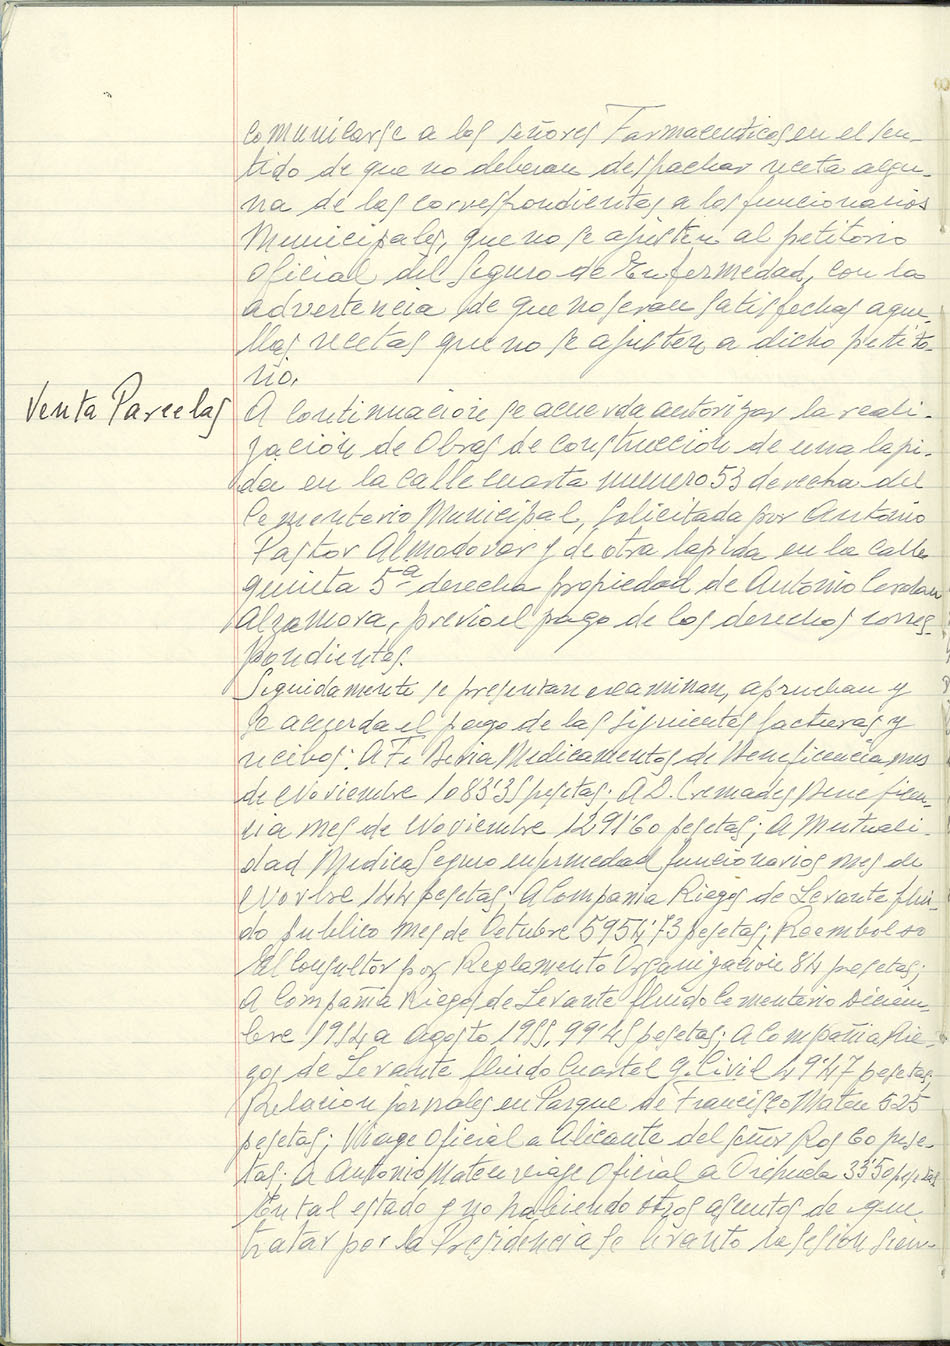 comunicarse a los señores Farmaceuticos en el sen-
tido de que no deberan despachar receta algu-
na de las correspondientes a los funcionarios
Municipales, que no se ajusten al petitorio
oficial del Seguro de Enfermedad, con la
advertencia de que no seran satisfechas aque-
llas recetas que no se ajusten a dicho petito-
rio.
Venta Parcelas
A continuación se acuerda autorizar la reali-
zación de Obras de construcción de una lapi-
da en la calle cuarta numero 53 derecha del
Cementerio Municipal, solicitada por Antonio
Pastor Almodovar y de otra lapida en la calle
quinta 5ª derecha propiedad de Antonio
Alzamora, previo el pago de los derechos corres-
pondientes.
Seguidamente se presentan examinan, aprueban y
se acuerda el pago de las siguientes facturas y
recibos: A Fº Medicamentos de Beneficencia mes
de Noviembre 1083'35 pesetas; A D. Cremades Beneficen-
cia mes de Noviembre 1291'60 pesetas; A Mutuali-
dad Medica Seguro enfermedad funcionarios mes de
Novbre 144 pesetas; A Compania Riegos de Levante flui-
do publico mes de Octubre 5954'73 pesetas; Reembolso
El Consultor por Reglamento Organización 84 pesetas;
A Compañia Riegos de Levante fluido Cementerio Diciem-
bre 1954 a Agosto 1955, 99'45 pesetas; A Compañia Rie-
gos de Levante fluido Cuartel G. Civil 49'47 pesetas,
Relacion jornales en Parque de Francisco Mateu 525
pesetas; Viage Oficial a Alicante del señor Ros 60 pese-
tas; A Antonio Mateu viaje Oficial a Orihuela 33'50 pesetas
En tal estado y no habiendo otros asuntos de que
tratar por la Presidencia se levanto la sesión sien-